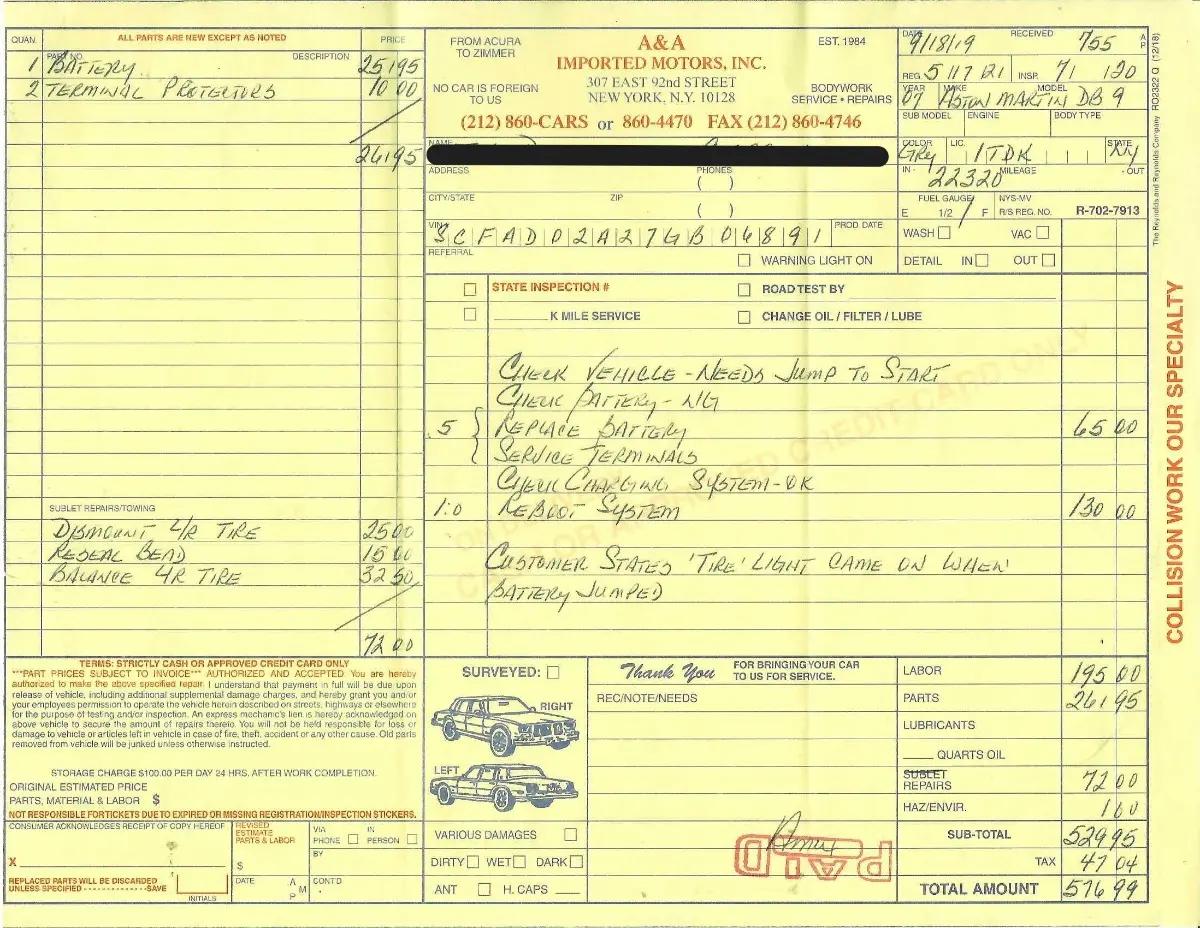 QUAN. ALL PARTS ARE NEW EXCEPT AS NOTED PRICE
PART NO. DESCRIPTION
1 BATTERY 251 95
2 TERMINAL PROTECTORS 10 00
261 95
SUBLET REPAIRS/TOWING
DISMOUNT L/R TIRE 25 00
RESEAL BEAD 15 00
BALANCE L/R TIRE 32 50
72 00
FROM ACURA
TO ZIMMER
NO CAR IS FOREIGN
TO US
A&A
IMPORTED MOTORS, INC.
307 EAST 92nd STREET
NEW YORK, N.Y. 10128
EST. 1984
BODYWORK
SERVICE • REPAIRS
(212) 860-CARS or 860-4470 FAX (212) 860-4746
NAME
ADDRESS PHONES
( )
CITY/STATE ZIP
( )
VIN SCFAD02A27GB06891 PROD DATE
REFERRAL
WARNING LIGHT ON
DATE 9/18/19 RECEIVED 755 A P
REG. 5 117 121 INSP. 71 120
YEAR 07 MAKE ASTON MARTIN MODEL DB9
SUB MODEL ENGINE BODY TYPE
COLOR GRY LIC. 1TDK STATE NY
IN - 22320 MILEAGE - OUT
FUEL GAUGE NYS-MV
E 1/2 F R/S REG. NO. R-702-7913
WASH VAC
DETAIL IN OUT
RO2322 Q (12/18)
The Reynolds and Reynolds Company
STATE INSPECTION # ROAD TEST BY
K MILE SERVICE CHANGE OIL / FILTER / LUBE
CHECK VEHICLE - NEEDS JUMP TO START
CHECK BATTERY - N/G
.5 REPLACE BATTERY 65 00
SERVICE TERMINALS
CHECK CHARGING SYSTEM - OK
1.0 REBOOT SYSTEM 130 00
CUSTOMER STATES 'TIRE' LIGHT CAME ON WHEN
BATTERY JUMPED
COLLISION WORK OUR SPECIALTY
TERMS: STRICTLY CASH OR APPROVED CREDIT CARD ONLY
***PART PRICES SUBJECT TO INVOICE*** AUTHORIZED AND ACCEPTED You are hereby
authorized to make the above specified repair. I understand that payment in full will be due upon
release of vehicle, including additional supplemental damage charges, and hereby grant you and/or
your employees permission to operate the vehicle herein described on streets, highways or elsewhere
for the purpose of testing and/or inspection. An express mechanic's lien is hereby acknowledged on
above vehicle to secure the amount of repairs thereto. You will not be held responsible for loss or
damage to vehicle or articles left in vehicle in case of fire, theft, accident or any other cause. Old parts
removed from vehicle will be junked unless otherwise instructed.
STORAGE CHARGE $100.00 PER DAY 24 HRS. AFTER WORK COMPLETION.
ORIGINAL ESTIMATED PRICE
PARTS, MATERIAL & LABOR $
NOT RESPONSIBLE FOR TICKETS DUE TO EXPIRED OR MISSING REGISTRATION/INSPECTION STICKERS.
CONSUMER ACKNOWLEDGES RECEIPT OF COPY HEREOF
X
REPLACED PARTS WILL BE DISCARDED
UNLESS SPECIFIED - - - - - - - - - - - - - - -SAVE
INITIALS
REVISED
ESTIMATE
PARTS & LABOR
$
DATE A M P
VIA PHONE IN PERSON
BY
CONT'D
SURVEYED:
RIGHT
LEFT
VARIOUS DAMAGES
DIRTY WET DARK
ANT H. CAPS
Thank You FOR BRINGING YOUR CAR
TO US FOR SERVICE.
REC/NOTE/NEEDS
PAID
LABOR 195 00
PARTS 261 95
LUBRICANTS
QUARTS OIL
SUBLET
REPAIRS 72 00
HAZ/ENVIR. 1 00
SUB-TOTAL 529 95
TAX 47 04
TOTAL AMOUNT 576 99